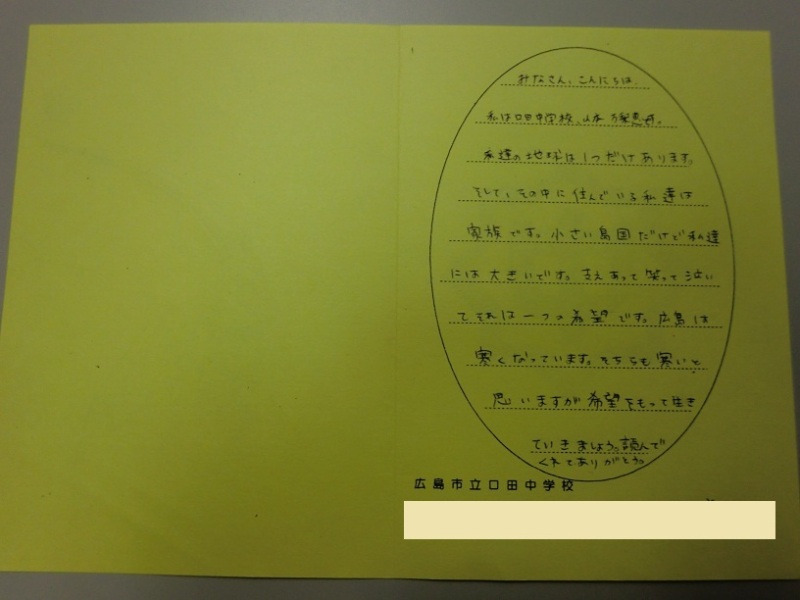 みなさん、こんにちは。
私は口田中学校、山本
私達の地球は1つだけあります。
そして、その中に住んでいる私達は
家族です。小さい島国だけど私達
には大きいです。支えあって笑って泣い
てそれは一つの希望です。広島は
寒くなっています。そちらも寒いと
思いますが希望をもって生き
ていきましょう。読んで
くれてありがとう。
広島市立口田中学校